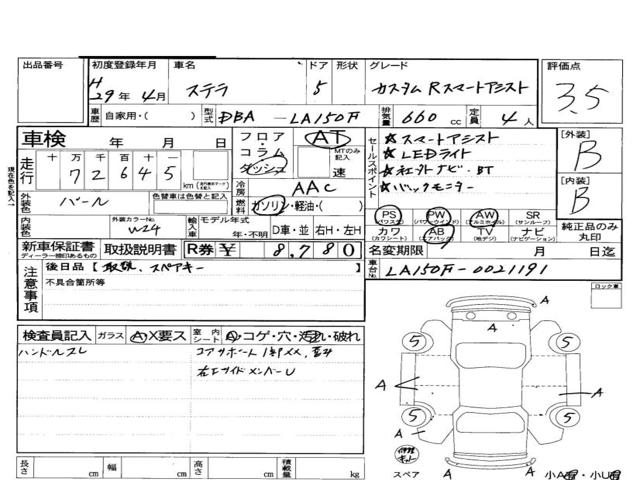 出品番号 初度登録年月 車名 ドア 形状 グレード 評価点
H 29年 4月 ステラ 5 カスタム Rスマートアシスト 3.5
車歴 自家用・( ) 型式 DBA - LA150F 排気量 660 cc 定員 4人
車検 年 月 日
走行 十 万 千 百 十
7 2 6 4 5 km
フロア・コラム ダッシュ AT MTのみ記入 速
冷房 AAC
燃料 ガソリン・軽油・( )
外装色 パール 色替車は色替と記入
内装色 外装カラーNo. W24 輸入車 モデル年式 年・不明 D車・並 右H・左H
セールスポイント
☆スマートアシスト
☆LEDライト
☆社外ナビ・BT
☆バックモニター
[外装] B
[内装] B
PS (パワステ) PW (パワーウインド) AW (アルミホイル) SR (サンルーフ)
カワ (カワシート) AB (エアバック) TV (地デジ) ナビ (ナビゲーション)
純正品のみ丸印
新車保証書 ディーラー捺印あるもの 取扱説明書 R券 ¥ 8,780
名変期限 月 日迄
車台No. LA150F-0021191
注意事項 後日品【取説、スペアキー
不具合箇所等
ロック車
検査員記入 ガラス A X要ス 室内 シート A・コゲ・穴・汚れ・破れ
ハンドルスレ
右サイドメンバーU
A
A
5 5
A A
5 5
A A
スペア A 小A・小U
長さ cm 幅 cm 高さ cm 積載量 kg
現在色を記入